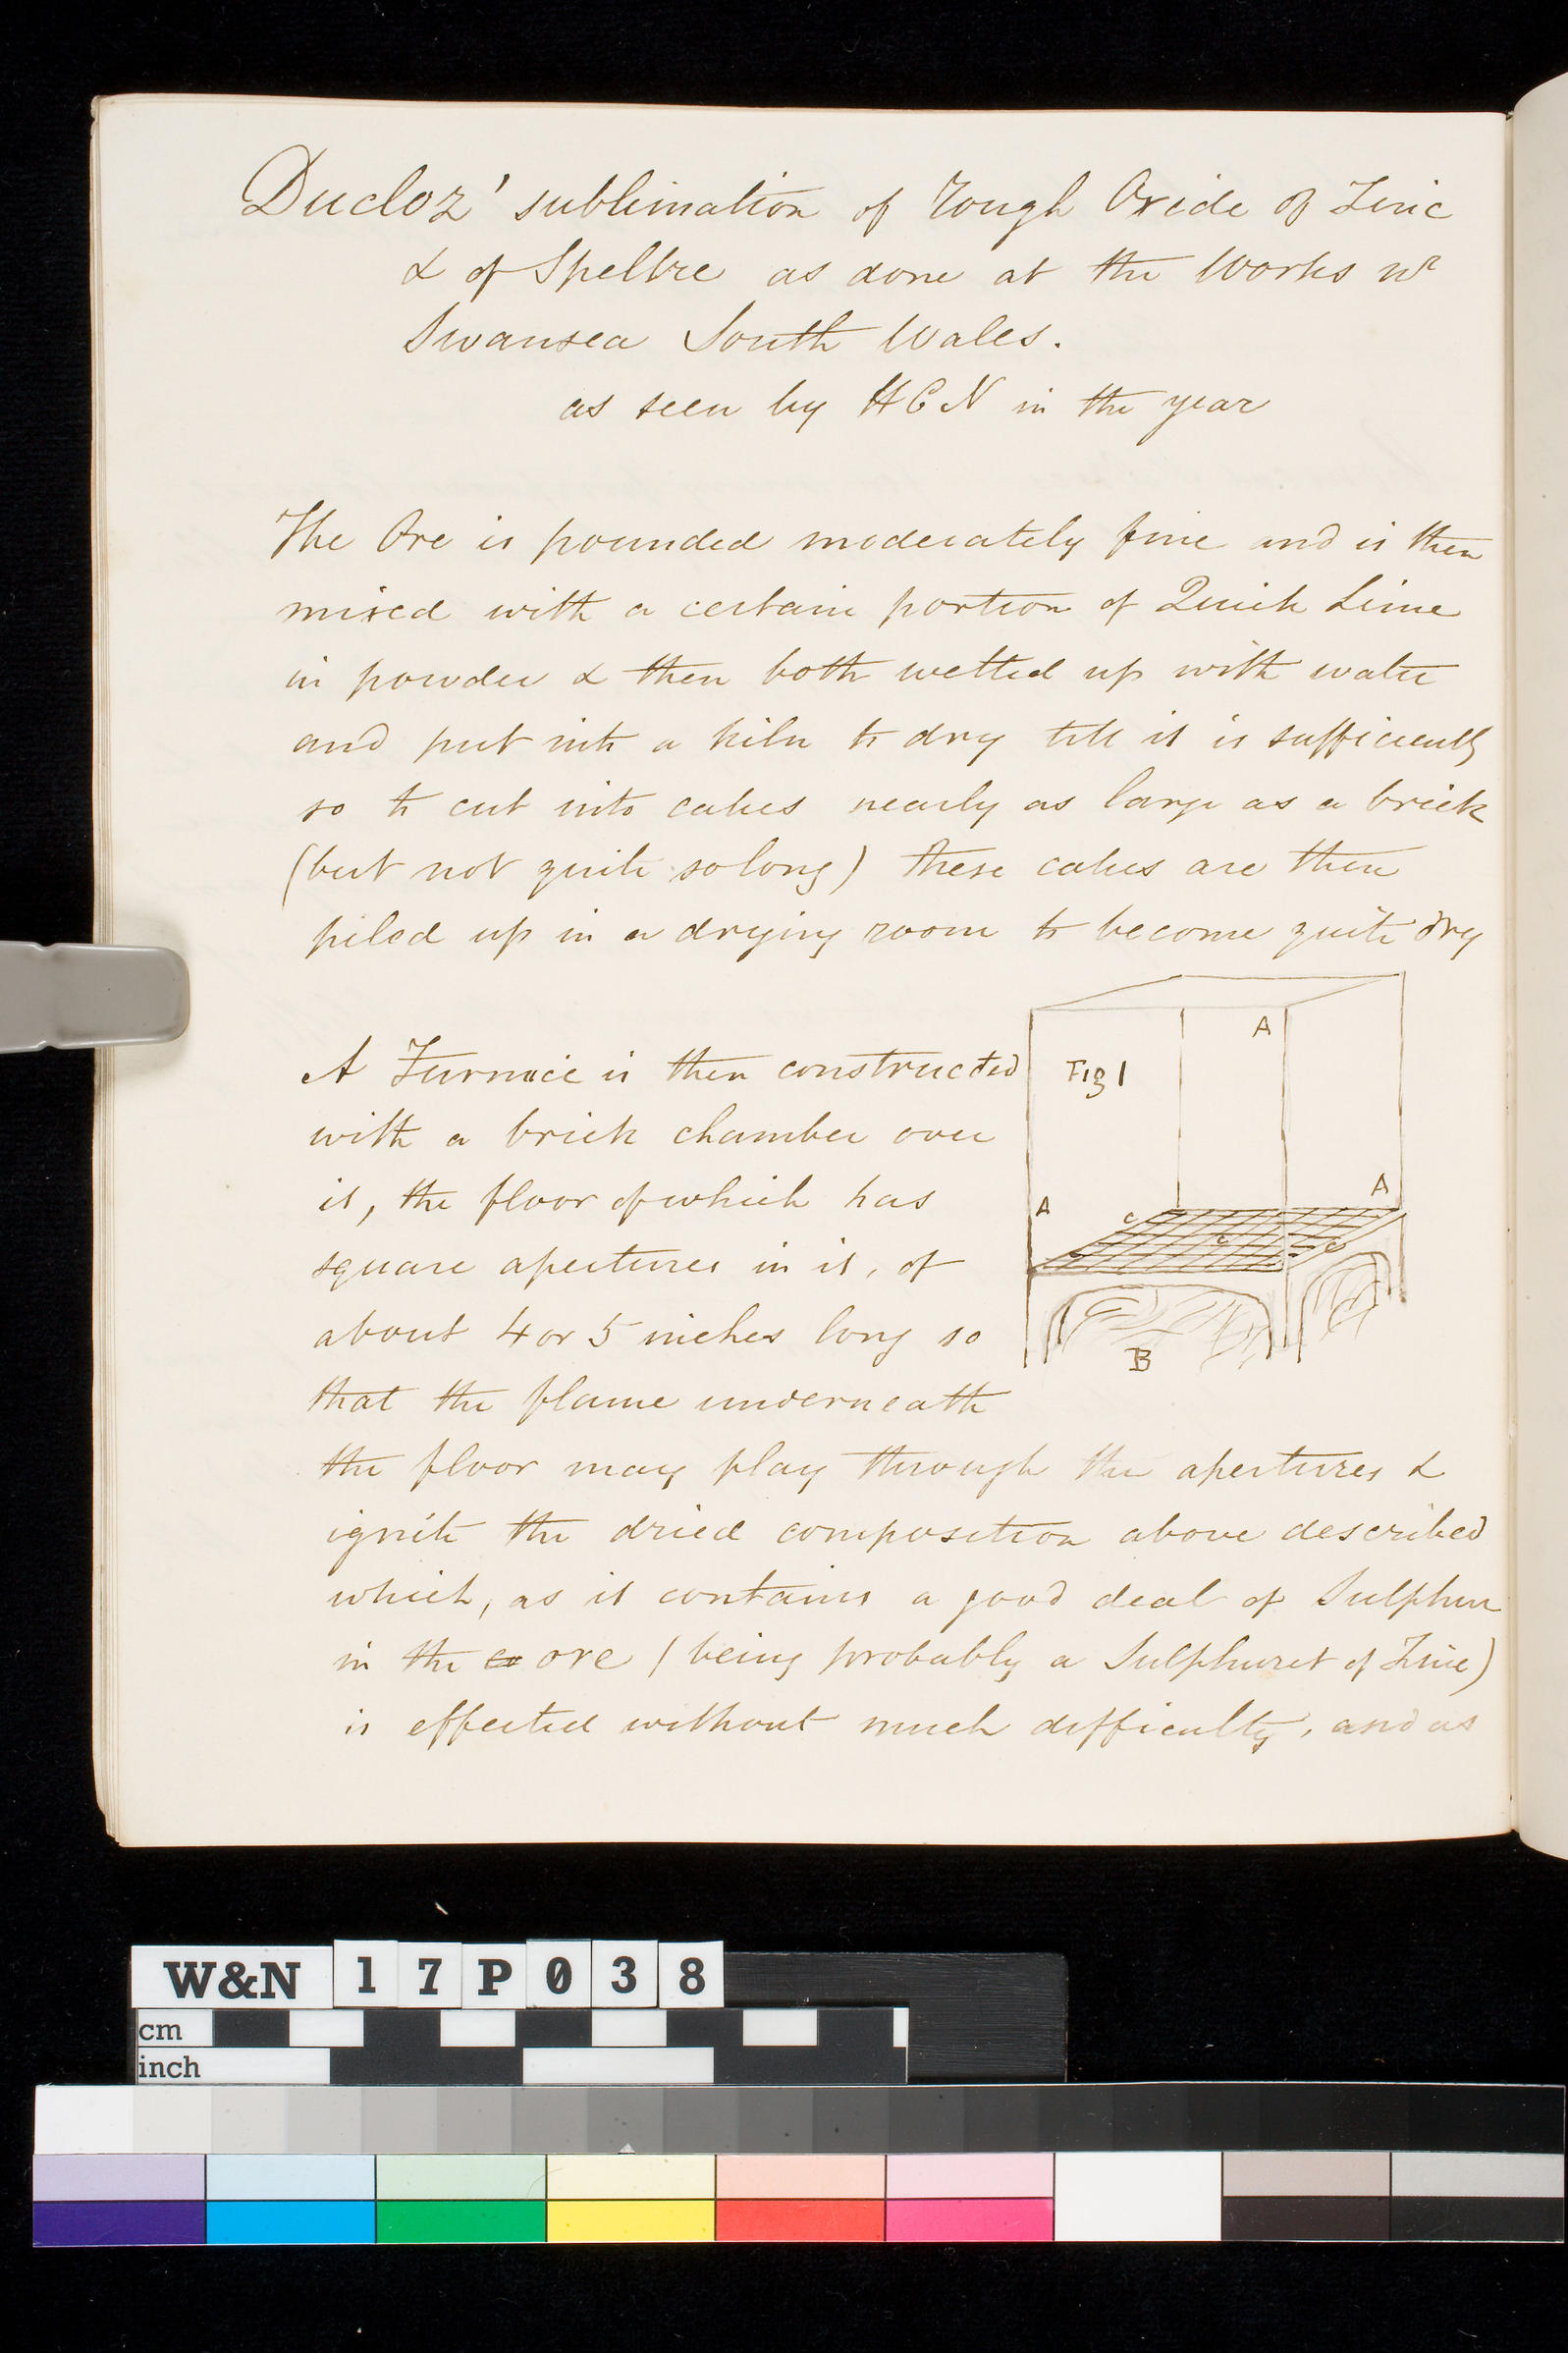 Ducloz' sublimation of rough Oxide of Zinc
& of Speltre as done at the Works nr
Swansea South Wales.
as seen by HCN in the year
The Ore is pounded moderately fine and is then
mixed with a certain portion of Quick Lime
in powder & then both wetted up with water
and put into a kiln to dry till it is sufficiently
so to cut into cakes nearly as large as a brick
(but not quite so long) these cakes are then
piled up in a drying room to become quite dry
A Furnace is then constructed
with a brick chamber over
it, the floor of which has
square apertures in it, of
about 4 or 5 inches long so
that the flame underneath
the floor may play through the apertures &
ignite the dried composition above described
which, as it contains a good deal of Sulphur
in the ore (being probably a Sulphuret of Zinc)
is effected without much difficulty, and as
A
Fig 1
A
A
c
c
c
B
W&N 17P038
cm
inch